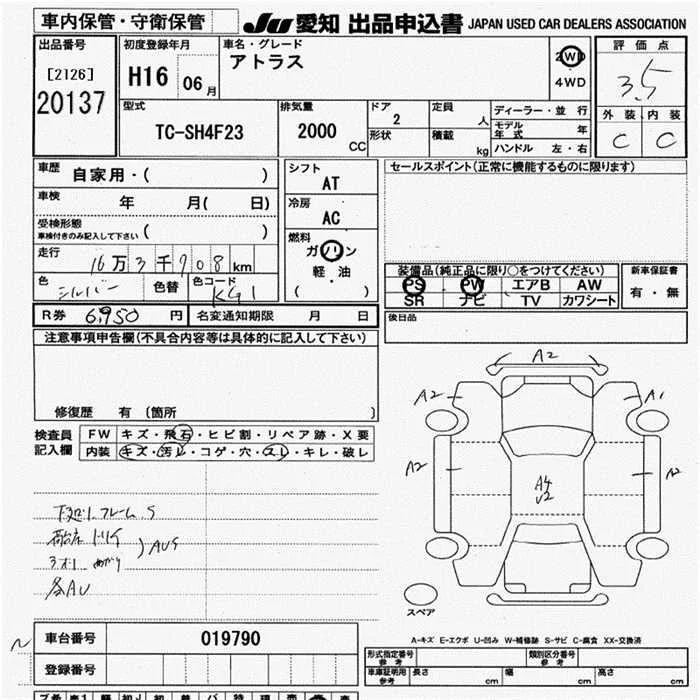 車内保管・守衛保管 JU 愛知 出品申込書 JAPAN USED CAR DEALERS ASSOCIATION
出品番号
[2126]
20137
初度登録年月
H16 06月
車名・グレード
アトラス
2WD
4WD
評価点
3.5
外装 内装
C C
型式
TC-SH4F23
排気量
2000 CC
ドア
2
形状
定員 人
積載 kg
ディーラー・並行
モデル年式 年
ハンドル 左・右
車歴 自家用・( )
車検 年 月( 日)
受検形態
車検付きのみ記入して下さい ( )
走行 16万3千908km
色 シルバー 色替 色コード KG1
シフト
AT
冷房
AC
燃料
ガソリン
軽・油
( )
セールスポイント(正常に機能するものに限ります)
装備品(純正品に限り○をつけてください)
PS PW エアB AW
SR ナビ TV カワシート
新車保証書
有・無
後日品
R券 6,950円 名変通知期限 月 日
注意事項申告欄(不具合内容等は具体的に記入して下さい)
修復歴 有〔箇所 〕
検査員記入欄
FW キズ・飛石・ヒビ割・リペア跡・X要
内装 キズ・汚レ・コゲ・穴・スレ・キレ・破レ
A2
A2 A1
A2 A2
A4
U2
スペア
車台番号 019790
登録番号
A-キズ E-エクボ U-凹み W-補修跡 S-サビ C-腐食 XX-交換済
形式指定番号 参考
類別区分番号 参考
車庫証明用 参考 長さ cm 幅 cm 高さ cm